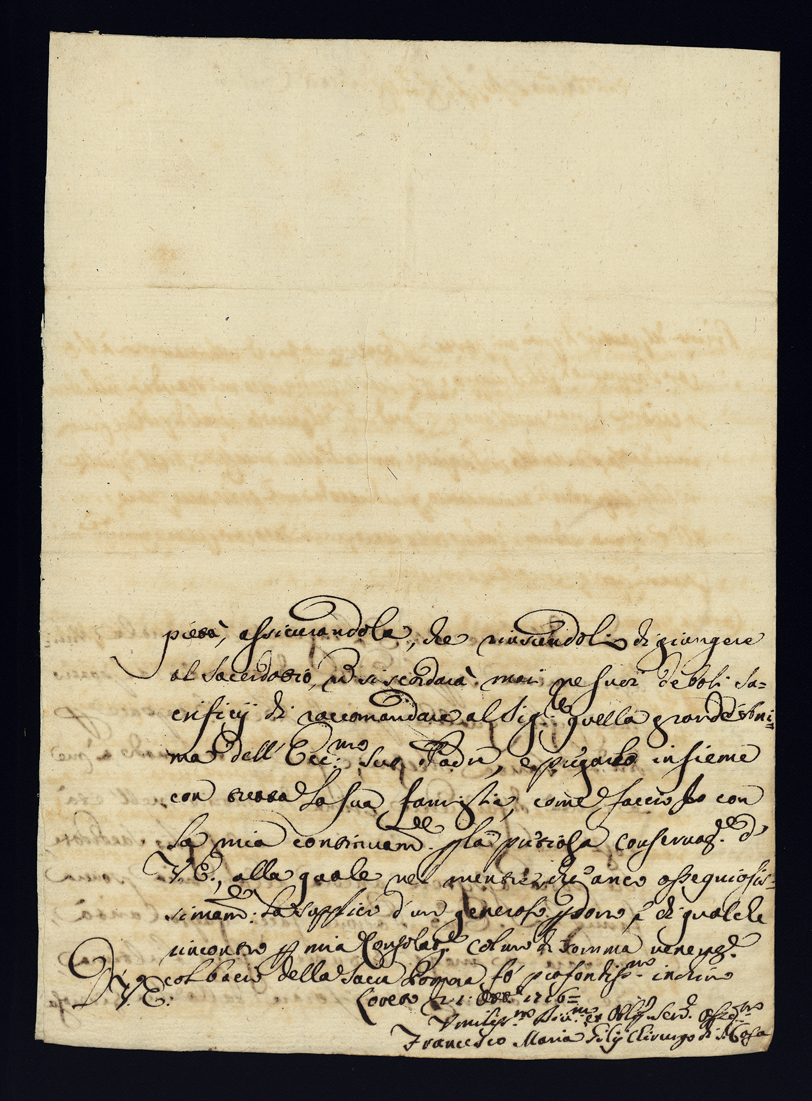 pietà, assicurandola, che riuscendoli di giungere
al sacerdotio, si scordarà mai ne suoi deboli sa=
crificij di raccomandare al Sig.re quella grand'Ani=
ma dell'Ecc.mo suo Padre, e pregarlo insieme
con tutta la sua famiglia, come faccio Io con
la mia continuam.te la pretiosa conservaz.e d
V.E., alla quale nel mentre che anco ossequiosis=
simam.te la supplico d'un generoso e di qualche
incontro mia Consolat.e colmo di somma veneraz.e
col bacio della Sacra Porpora fò profondiss.mo inchino
D V. E. Loreto 21: 1716=
Umiliss.mo Div.mo et Obblig. Serv. Osseq.mo
Francesco Maria Filij Chirurgo di S. Casa